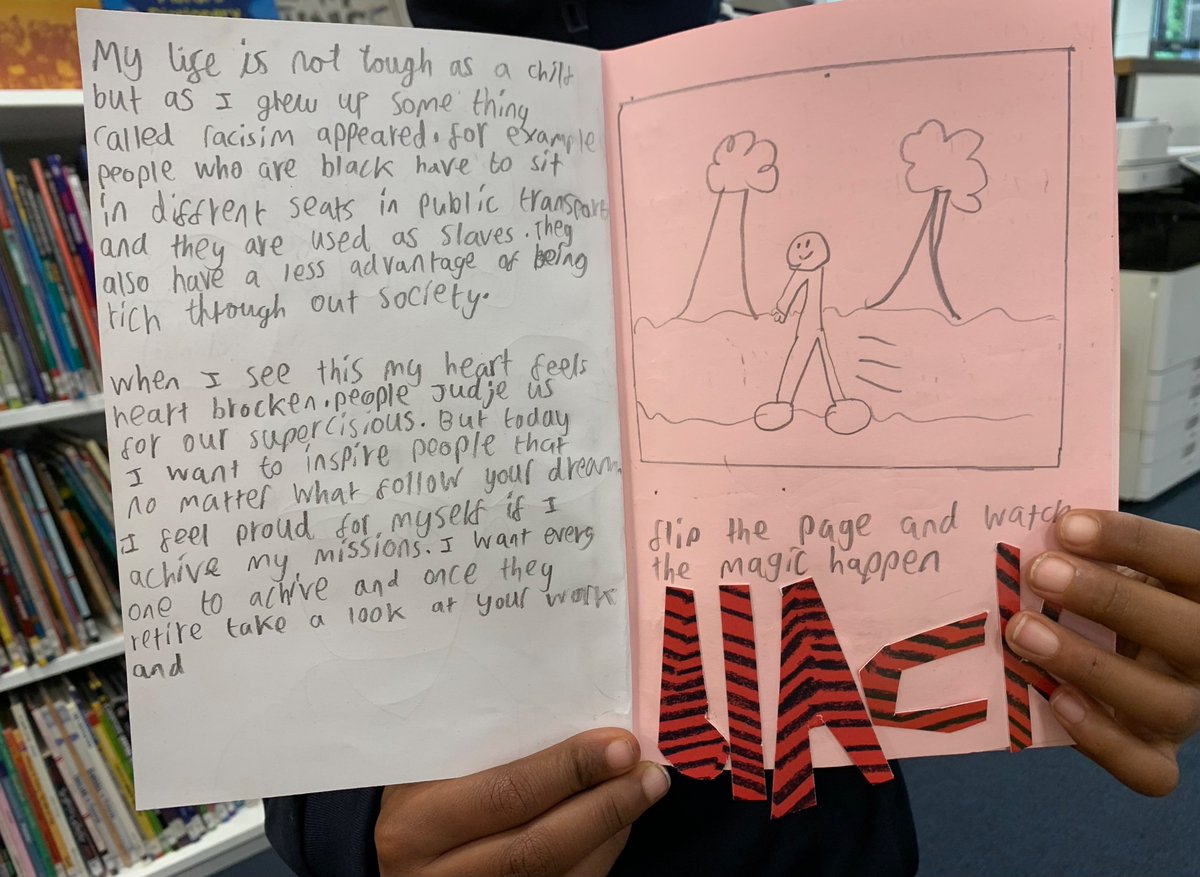 My life is not tough as a child
but as I grew up some thing
called racisim appeared. for example
people who are black have to sit
in diffrent seats in public transport
and they are used as slaves. They
also have a less advantage of being
rich through out society.
when I see this my heart feels
heart brocken. people Judje us
for our supercisious. But today
I want to inspire people that
no matter what follow your dream
I feel proud for myself if I
achive my missions. I want every
one to achive and once they
retire take a look at your work
and
flip the page and watch
the magic happen
blAck